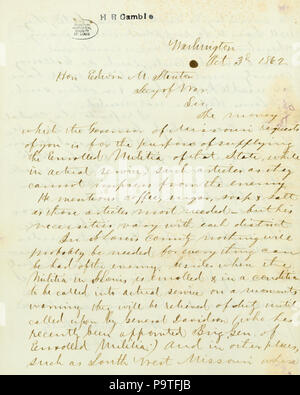 H R Gamble
Washington
Oct. 3d 1862
Hon Edwin M Stanton
Secy of War
Sir
The money
which the Governor of Missouri requests
of you is for the purpose of supplying
the Enrolled Militia of that State, while
in actual service, such articles as they
cannot impress from the enemy.
He mentions coffee, sugar, soap & salt
as those articles most needed - but his
necessities vary with each district
In St Louis County nothing will
probably be needed for every thing can
be had of the enemy, besides when the
Militia in St Louis is enrolled & in a condition
to be called into actual service on a moments
warning they will be relieved of duty until
called upon by General Davidson (who has
recently been appointed Brig Gen. of
Enrolled Militia.) And in other places
such as South West Missouri where
alamy
PT9TFJB